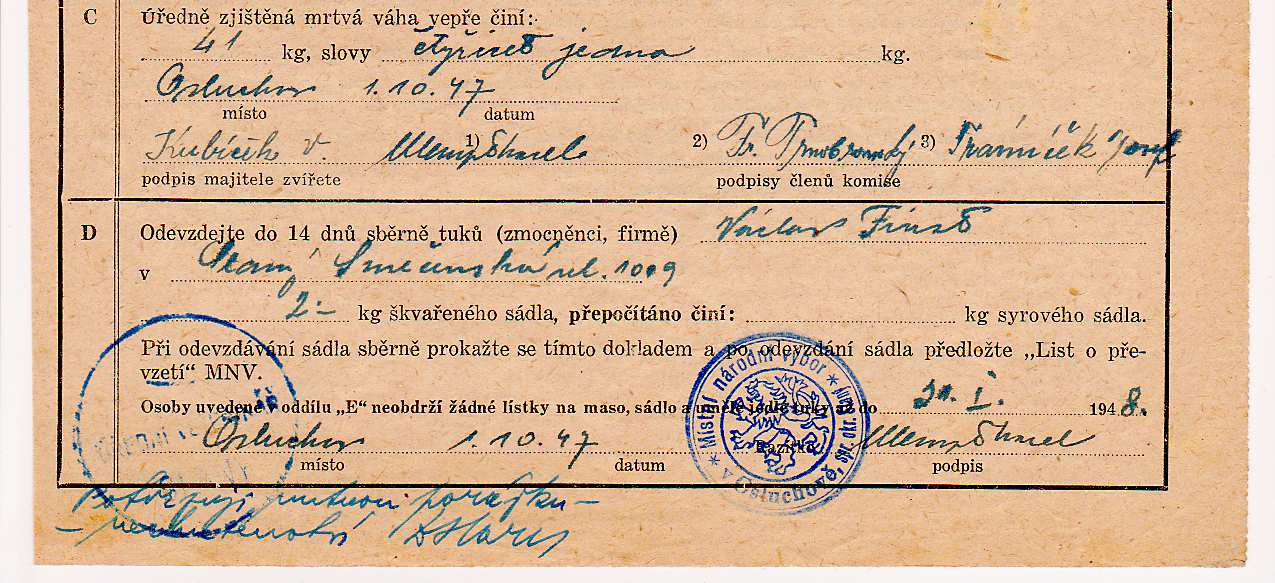 C Úředně zjištěná mrtvá váha vepře činí:
41 kg, slovy čtyřicet jedna kg.
Osluchov 1.10.47
místo datum
Kubíček V. 1) 2) Fr. 3) Trávníček Josef
podpis majitele zvířete podpisy členů komise
D Odevzdejte do 14 dnů sběrně tuků (zmocněnci, firmě) Václav
v Slaný Smečenská ul. 1009
2.- kg škvařeného sádla, přepočítáno činí: kg syrového sádla.
Při odevzdávání sádla sběrně prokažte se tímto dokladem a po odevzdání sádla předložte „List o pře-
vzetí" MNV.
Osoby uvedené v oddílu „E" neobdrží žádné lístky na maso, sádlo a umělé jedlé tuky až do 31. I. 1948.
Osluchov 1.10.47 Razítko
místo datum podpis
* Místní národní výbor * v Osluchově, spr. okr. Slaný
Potvrzuji nutnou porážku